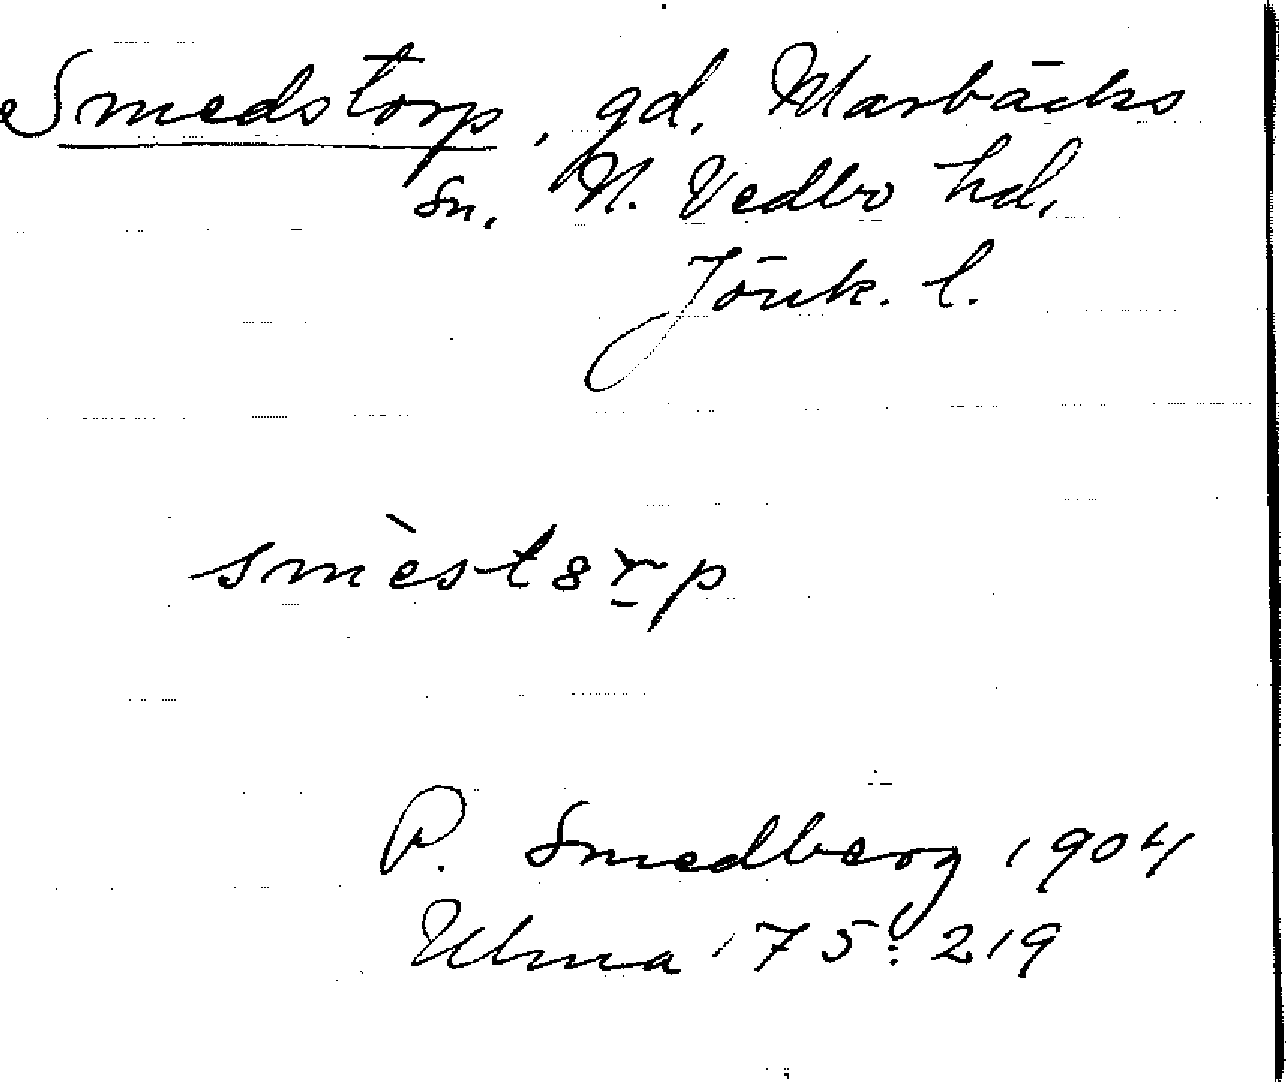 Smedstorp, gd, Marbäcks
sn, N. Vedbo hd,
Jönk. l.
smèst8r̠p
P. Smedberg 1904
Ulma 175:219